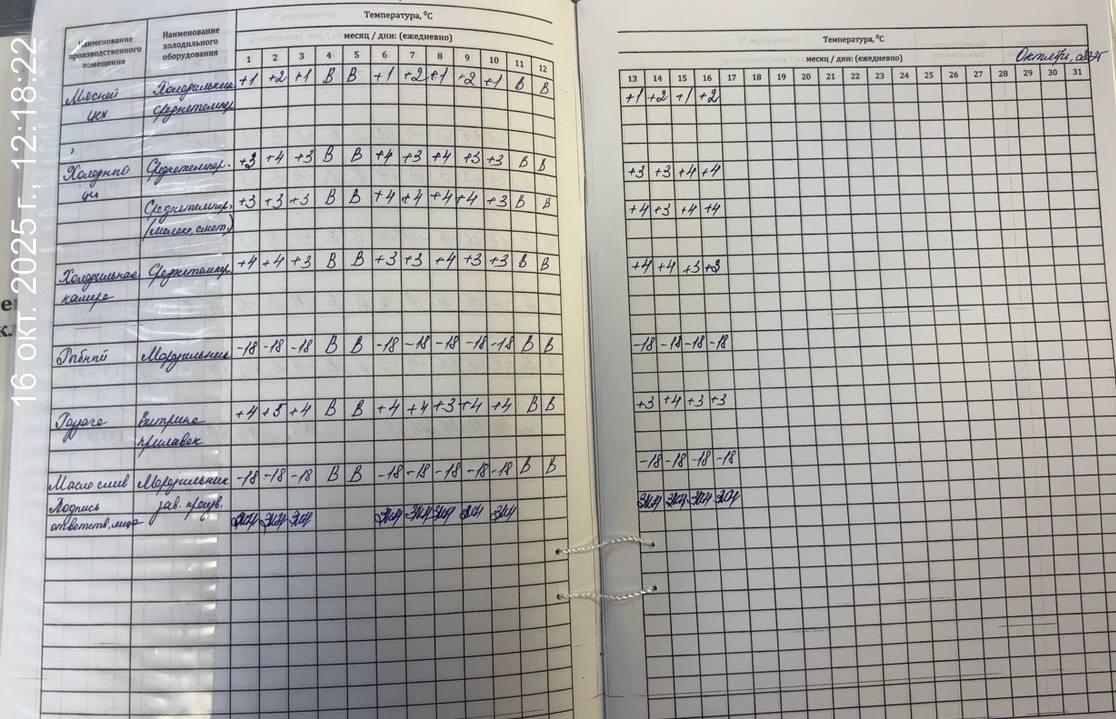 16 окт. 2025 г., 12:18:22
Наименование производственного помещения
Наименование холодильного оборудования
Температура, °С
месяц / дни: (ежедневно)
1 2 3 4 5 6 7 8 9 10 11 12
Мясной Холодильник +1 +2 +1 В В +1 +2 +1 +2 +1 В В
цех среднетемпер.
Холодный Среднетемпер. +3 +4 +3 В В +4 +3 +4 +3 +3 В В
Среднетемпер. +3 +3 +3 В В +4 +4 +4 +4 +3 В В
(молоко, смет.)
Холодильная Среднетемпер. +4 +4 +3 В В +3 +3 +4 +3 +3 В В
камера
Рыбный Морозильник -18 -18 -18 В В -18 -18 -18 -18 -18 В В
Витрина +4 +5 +4 В В +4 +4 +3 +4 +4 В В
прилавок
Масло слив Морозильник -18 -18 -18 В В -18 -18 -18 -18 -18 В В
Подпись зав. произв.
ответств. лица
Температура, °С
месяц / дни: (ежедневно) Октябрь, 2025
13 14 15 16 17 18 19 20 21 22 23 24 25 26 27 28 29 30 31
+1 +2 +1 +2
+3 +3 +4 +4
+4 +3 +4 +4
+4 +4 +3 +3
-18 -18 -18 -18
+3 +4 +3 +3
-18 -18 -18 -18